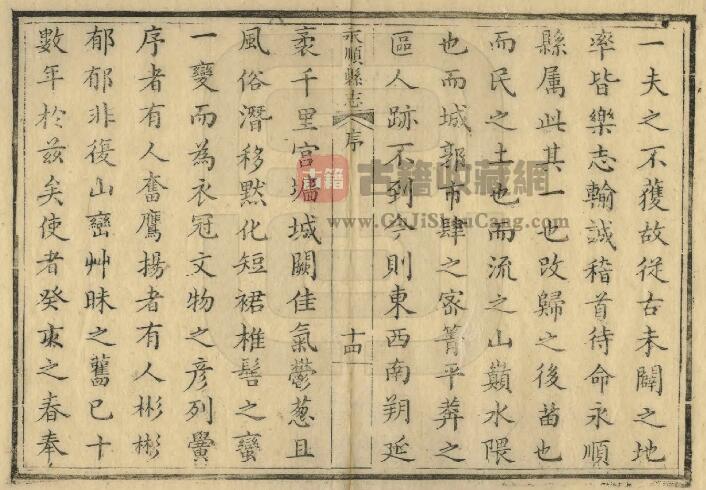 一夫之不獲故從古未闢之地
率皆樂志輸誠稽首待命永順
縣属此其一也改歸之後苗也
而民之土也而流之山巔水隈
也而城郭市肆之密箐平莽之
區人跡不到今則東西南朔延
永順縣志
序
十四
袤千里宫墉城闕佳氣鬱葱且
風俗潛移默化短裙椎髻之蠻
一變而為衣冠文物之彦列黌
序者有人奮鷹揚者有人彬彬
郁郁非復山巒艸昧之舊已十
數年於兹矣使者癸亥之春奉
古籍
古籍收藏網
www.GuJiShouCang.com